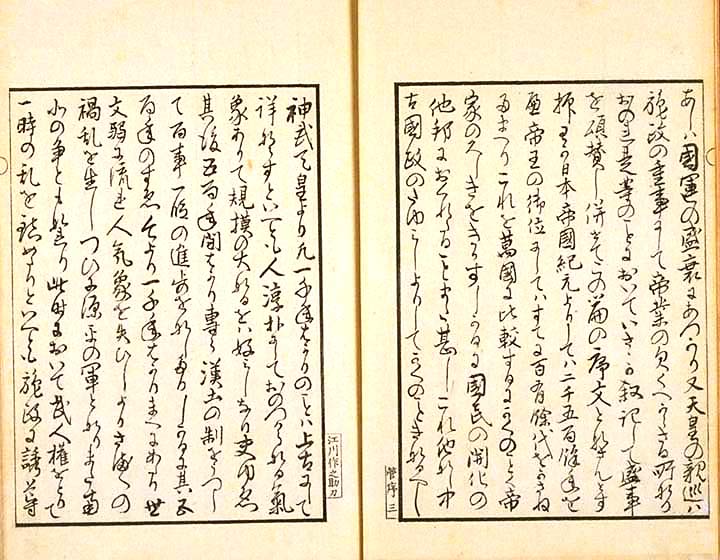 あしハ國運の盛衰にあつかり又天皇の親巡ハ
施政の重事にして帝業の欠くへからさる所なり
おのれ是等のことにおいていさゝか叙記して盛事
を頌賛し併せてこの篇の序文となさんとす
抑わか日本帝國紀元よりしてハ二千五百餘年を
歴帝王の御位にましてハすてに百有餘代をかさね
たまへりこれを萬國に比較するにかくのことく帝
家のひさしきをきかすしかるに國民の開化の
他邦におくれたることまた甚しこれ他なし中
古國政の
神武天皇より凡一千年はかりのことハ上古にして
詳ならすといへとも人淳朴にしておのつからなる氣
象ありて規摸の大なるをハ好ミしなり
其後五百年間はかり專ら漢土の制をうつし
て百事一段の進歩をなしたりしかるに其五
百年のすゑ今より一千年はかりまへにあたり世
文弱に流れ人氣象を失ひしよりさま〱の
禍乱を生しつひに源平の軍となりまた南
北の争ともなり此時において武人權をとりて
一時の乱を鎮めたりといへとも施政に
管序 三
江川作之助刀